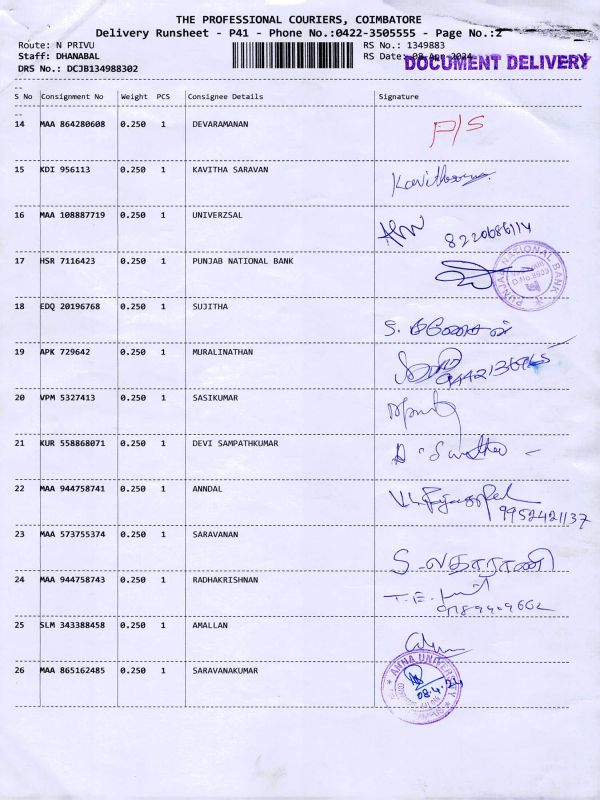 THE PROFESSIONAL COURIERS, COIMBATORE
Delivery Runsheet - P41 - Phone No.:0422-3505555 - Page No.:2
Route: N PRIVU RS No.: 1349883
Staff: DHANABAL RS Date: 08 Apr 2024
DOCUMENT DELIVERY
DRS No.: DCJB134988302
S No Consignment No Weight PCS Consignee Details Signature
14 MAA 864280608 0.250 1 DEVARAMANAN P/S
15 KDI 956113 0.250 1 KAVITHA SARAVAN
16 MAA 108887719 0.250 1 UNIVERZSAL 8220686114
17 HSR 7116423 0.250 1 PUNJAB NATIONAL BANK
PUNJAB NATIONAL BANK
18 EDQ 20196768 0.250 1 SUJITHA
19 APK 729642 0.250 1 MURALINATHAN
20 VPM 5327413 0.250 1 SASIKUMAR
21 KUR 558868071 0.250 1 DEVI SAMPATHKUMAR
22 MAA 944758741 0.250 1 ANNDAL 9952421137
23 MAA 573755374 0.250 1 SARAVANAN S. லதாராணி
24 MAA 944758743 0.250 1 RADHAKRISHNAN
25 SLM 343388458 0.250 1 AMALLAN
26 MAA 865162485 0.250 1 SARAVANAKUMAR
ANNA UNIVERSITY
08.4.24